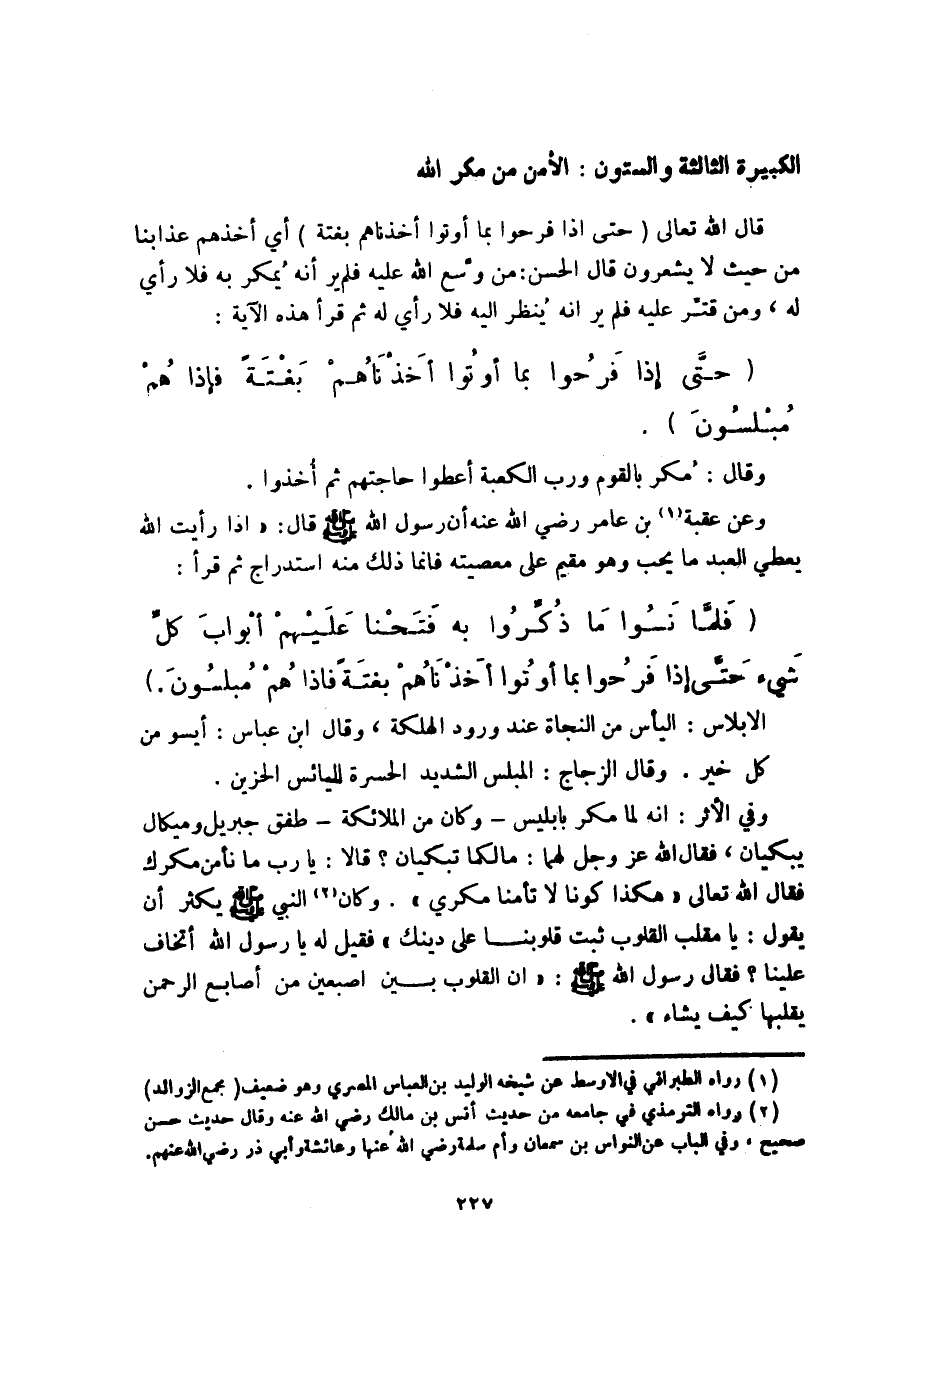 الكبيرة الثالثة والستون : الأمن من مكر الله
قال الله تعالى ( حتى اذا فرحوا بما أوتوا أخذناهم بغتة ) أي أخذهم عذابنا
من حيث لا يشعرون قال الحسن : من وسّع الله عليه فلم ير أنه يُمكر به فلا رأي
له ، ومن قتّر عليه فلم ير انه يُنظر اليه فلا رأي له ثم قرأ هذه الآية :
( حتَّى إذا فَرحُوا بما أوتُوا أخَذْنَاهُمْ بَغْتَةً فإذا هُمْ
مُبْلسُونَ ) .
وقال : مُكر بالقوم ورب الكعبة أعطوا حاجتهم ثم أُخذوا .
وعن عقبة(١) بن عامر رضي الله عنه أن رسول الله ﷺ قال : « اذا رأيت الله
يعطي العبد ما يحب وهو مقيم على معصيته فانما ذلك منه استدراج ثم قرأ :
( فَلمَّا نَسُوا مَا ذُكِّرُوا به فَتَحْنا عَلَيْهمْ أبْوابَ كلِّ
شَيء حَتَّى إذا فَرحُوا بما أوتُوا أخَذْنَاهُمْ بغتَةً فاذا هُمْ مُبلسُونَ . )
الابلاس : اليأس من النجاة عند ورود الهلكة ، وقال ابن عباس : أيسو من
كل خير . وقال الزجاج : المبلس الشديد الحسرة لليائس الحزين .
وفي الأثر : انه لما مكر بابليس – وكان من الملائكة – طفق جبريل وميكال
يبكيان ، فقال الله عز وجل لهما : مالكما تبكيان ؟ قالا : يا رب ما نأمن مكرك
فقال الله تعالى « هكذا كونا لا تأمنا مكري » . وكان(٢) النبي ﷺ يكثر أن
يقول : يا مقلب القلوب ثبت قلوبنا على دينك » فقيل له يا رسول الله أتخاف
علينا ؟ فقال رسول الله ﷺ : « ان القلوب بين اصبعين من أصابع الرحمن
يقلبها كيف يشاء » .
(١) رواه الطبراني في الاوسط عن شيخه الوليد بن العباس المصري وهو ضعيف ( مجمع الزوائد )
(٢) رواه الترمذي في جامعه من حديث أنس بن مالك رضي الله عنه وقال حديث حسن
صحيح ، وفي الباب عن النواس بن سمعان وأم سلمة رضي الله عنها وعائشة وأبي ذر رضي الله عنهم .
٢٢٧